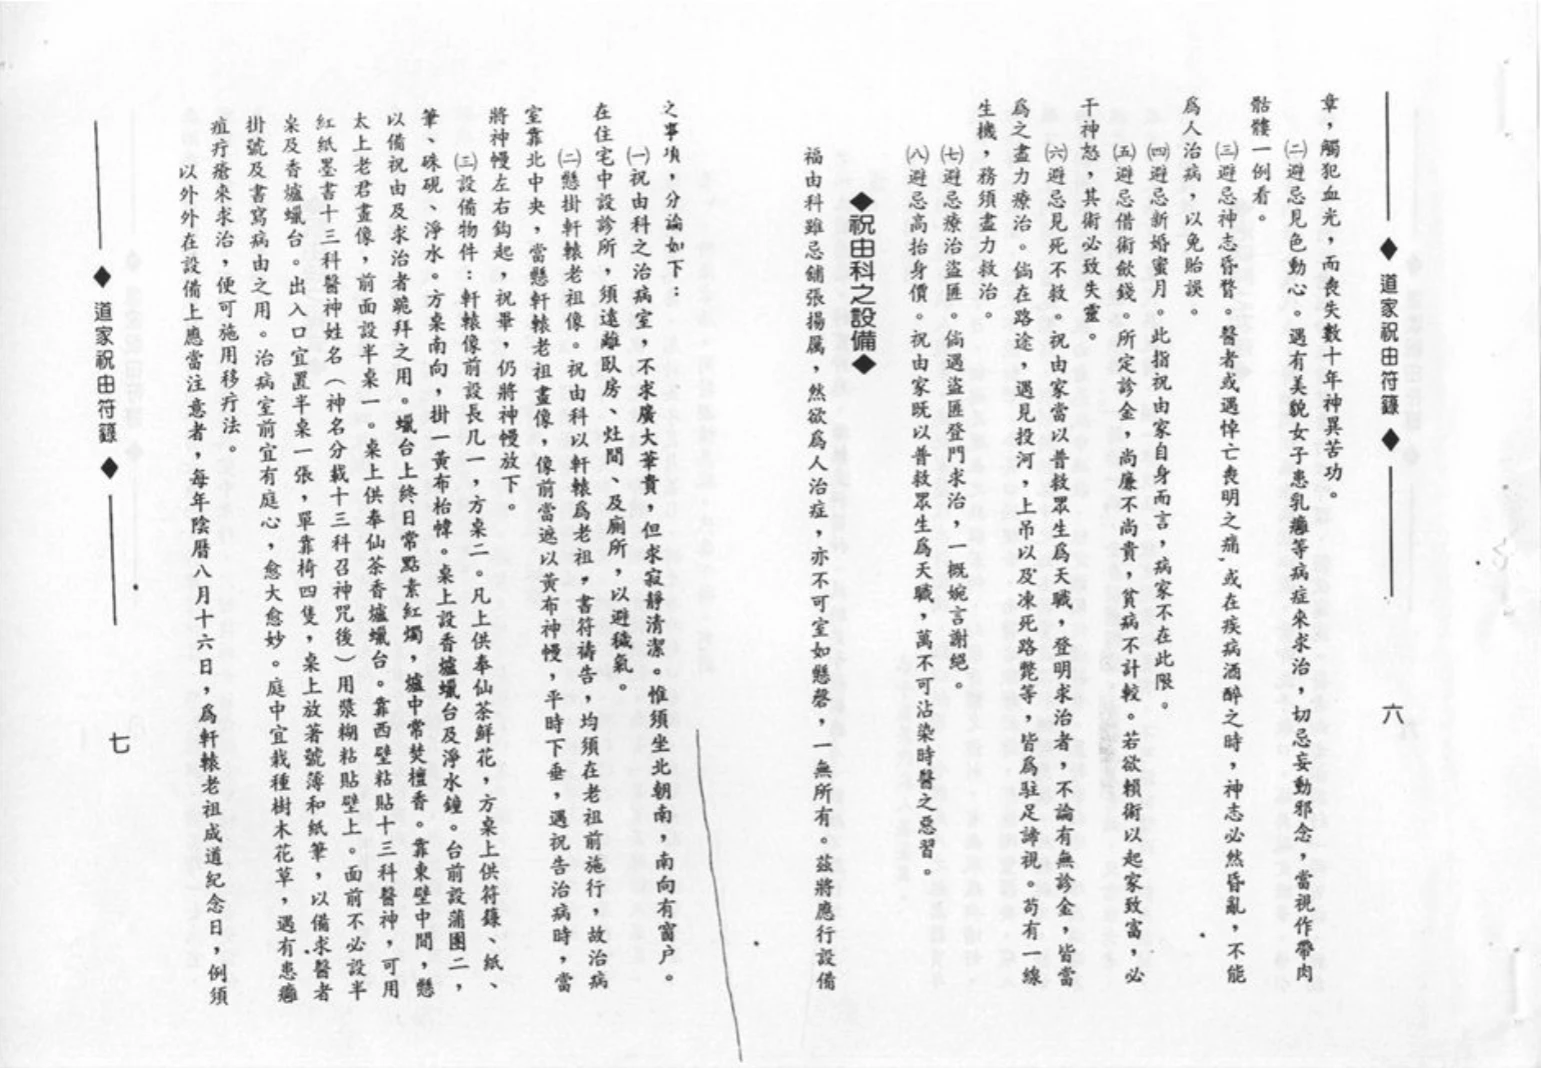 ◆ 道家祝由符籙 ◆ 六
章，觸犯血光，而喪失數十年神異苦功。
㈡避忌見色動心。遇有美貌女子患乳癰等病症來求治，切忌妄動邪念，當視作帶肉
骷髏一例看。
㈢避忌神志昏瞀。醫者或遇悼亡喪明之痛，或在疾病酒醉之時，神志必然昏亂，不能
爲人治病，以免貽誤。
㈣避忌新婚蜜月。此指祝由家自身而言，病家不在此限。
㈤避忌借術歛錢。所定診金，尚廉不尚貴，貧病不計較。若欲賴術以起家致富，必
干神怒，其術必致失靈。
㈥避忌見死不救。祝由家當以普救眾生爲天職，登明求治者，不論有無診金，皆當
爲之盡力療治。倘在路途，遇見投河，上吊以及凍死路斃等，皆爲駐足諦視。苟有一線
生機，務須盡力救治。
㈦避忌療治盜匪。倘遇盜匪登門求治，一概婉言謝絕。
㈧避忌高抬身價。祝由家既以普救眾生爲天職，萬不可沾染時醫之惡習。
◆祝由科之設備◆
福由科雖忌鋪張揚厲，然欲爲人治症，亦不可室如懸磬，一無所有。茲將應行設備
之事項，分論如下：
㈠祝由科之治病室，不求廣大華貴，但求寂靜清潔。惟須坐北朝南，南向有窗戶。
在住宅中設診所，須遠離臥房、灶間、及廁所，以避穢氣。
㈡懸掛軒轅老祖像。祝由科以軒轅爲老祖，書符禱告，均須在老祖前施行，故治病
室靠北中央，當懸軒轅老祖畫像，像前當遮以黃布神幔，平時下垂，遇祝告治病時，當
將神幔左右鈎起，祝畢，仍將神幔放下。
㈢設備物件：軒轅像前設長几一，方桌二。凡上供奉仙茶鮮花，方桌上供符籙、紙、
筆、硃硯、淨水。方桌南向，掛一黃布枱幃。桌上設香爐蠟台及淨水鐘。台前設蒲團二，
以備祝由及求治者跪拜之用。蠟台上終日常點素紅燭，爐中常焚檀香。靠東壁中間，懸
太上老君畫像，前面設半桌一。桌上供奉仙茶香爐蠟台。靠西壁粘貼十三科醫神，可用
紅紙墨書十三科醫神姓名（神名分載十三科召神咒後）用漿糊粘貼壁上。面前不必設半
桌及香爐蠟台。出入口宜置半桌一張，單靠椅四隻，桌上放著號簿和紙筆，以備求醫者
掛號及書寫病由之用。治病室前宜有庭心，愈大愈妙。庭中宜栽種樹木花草，遇有患癰
疽疔瘡來求治，便可施用移疔法。
以外外在設備上應當注意者，每年陰曆八月十六日，爲軒轅老祖成道紀念日，例須
◆ 道家祝由符籙 ◆ 七